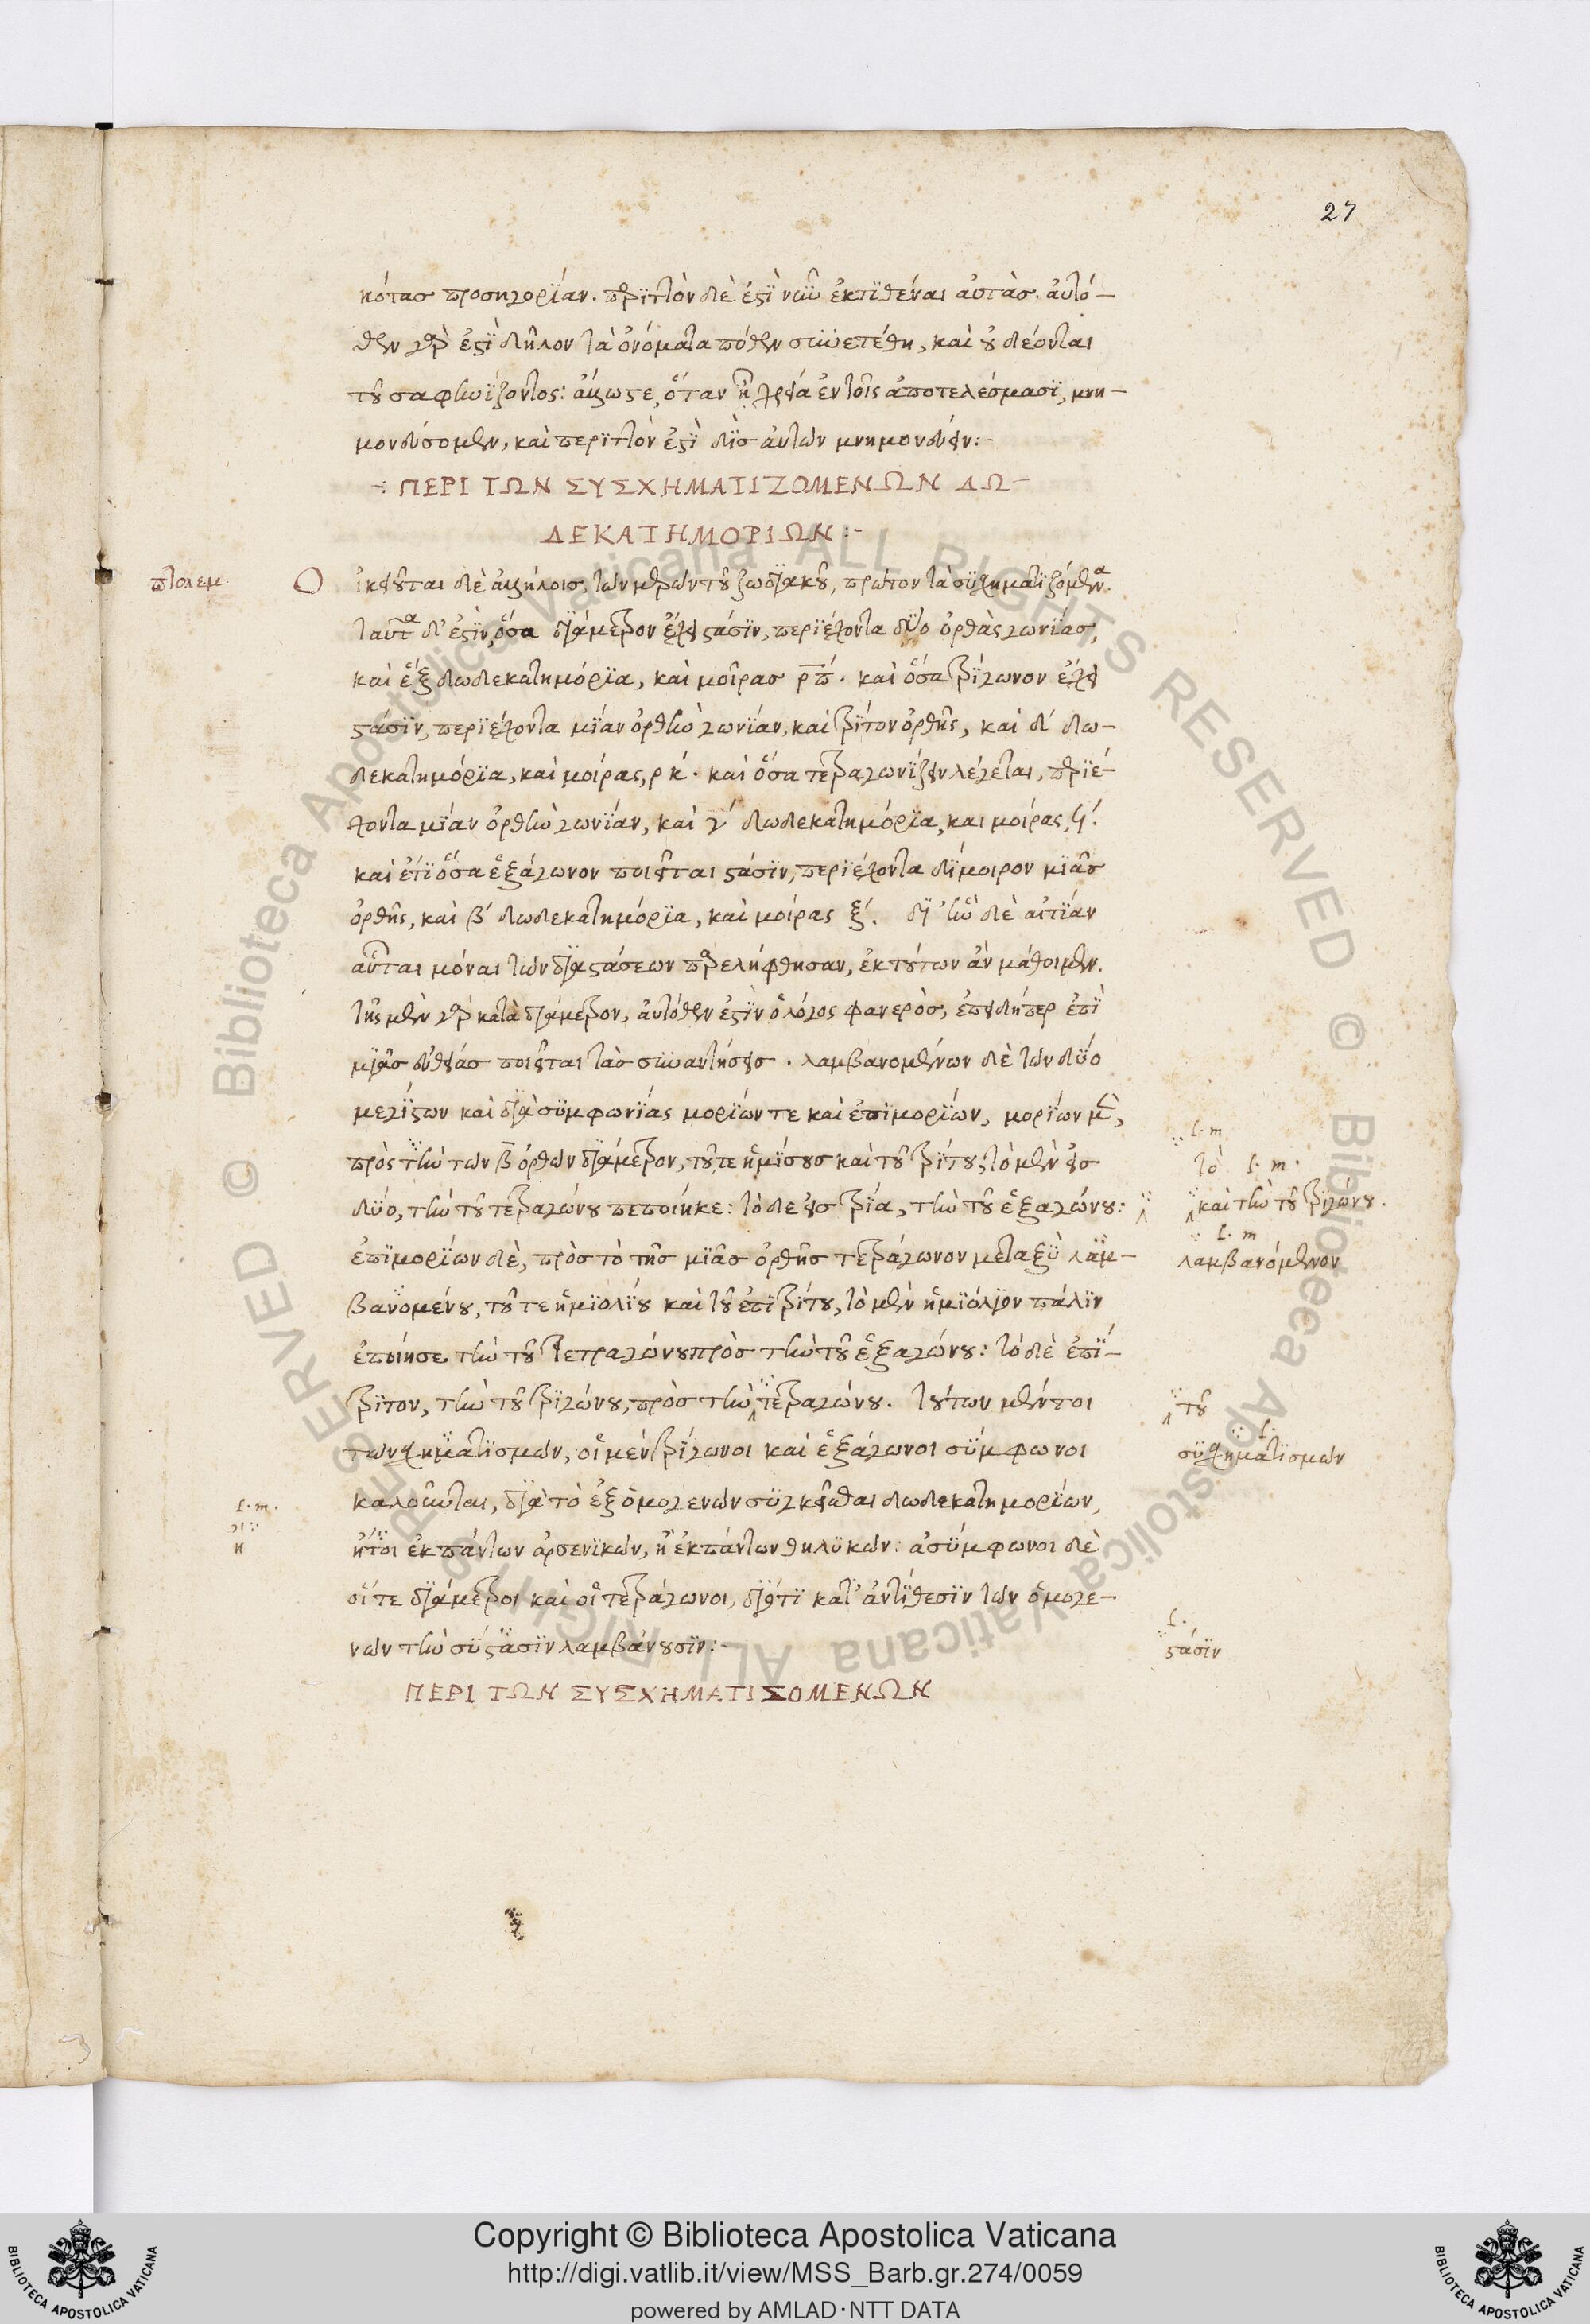 27
κότας προσηγορΐαν. περϊττὸν δὲ ἐστὶ νῦν ἐκτϊθέναι αὐτὰς. αὐτό-
θεν γὰρ ἐστὶ δῆλον τὰ ὀνόματα πόθεν συνετέθη, καὶ οὐ δέονται
τοῦ σαφηνΐζοντος: ἄλλως τε, ὅταν ᾖ χρεία ἐν τοῖς ἀποτελέσμασϊ, μνη-
μονεύσομεν, καὶ περϊττὸν ἐστὶ δὶς αὐτῶν μνημονεύειν:-
ΠΕΡΙ ΤΩΝ ΣΥΣΧΗΜΑΤΙΖΟΜΕΝΩΝ ΔΩ-
ΔΕΚΑΤΗΜΟΡΙΩΝ:-
πτολεμ.
Οἰκειοῦται δὲ ἀλλήλοις, τῶν μερῶν τοῦ ζωδϊακοῦ, πρῶτον τὰ σϋσχηματϊζόμενα.
ταῦτα δ' ἐστὶν, ὅσα δϊάμετρον ἔχει στάσϊν, περϊέχοντα δύο ὀρθὰς γωνΐας,
καὶ ἓξ δωδεκατημόρϊα, καὶ μοῖρας ρπ. καὶ ὅσα τρΐγωνον ἔχει
στάσϊν, περϊέχοντα μΐαν ὀρθὴν γωνΐαν, καὶ τρΐτον ὀρθῆς, καὶ δ' δω-
δεκατημόρϊα, καὶ μοίρας, ρκ'. καὶ ὅσα τετραγωνΐζειν λέγεται, περϊέ-
χοντα μΐαν ὀρθὴν γωνΐαν, καὶ γ' δωδεκατημόρϊα, και μοίρας, ϟ'.
καὶ ἔτϊ ὅσα ἑξάγωνον ποιεῖται στάσϊν, περϊέχοντα δΐμοιρον μϊᾶς
ὀρθῆς, καὶ β' δωδεκατημόρϊα, καὶ μοίρας ξ'. δϊ' ἣν δὲ αἰτΐαν
αὗται μόναι τῶν δϊαστάσεων παρελήφθησαν, ἐκ τούτων ἂν μάθοιμεν.
τῆς μὲν γὰρ κατὰ δϊάμετρον, αὐτόθεν ἐστὶν ὁ λόγος φανερὸς, ἐπειδήπερ ἐπὶ
μϊᾶς εὐθείας ποιεῖται τὰς συναντήσεις. λαμβανομένων δὲ τῶν δύο
μεγΐστων καὶ δϊὰ σϋμφωνΐας μορΐων τε καὶ ἐπϊμορΐων, μορΐων μὲν,
πρὸς τὴν τῶν β ὀρθῶν δϊάμετρον, τοῦ τε ἡμΐσους καὶ τοῦ τρΐτου, τὸ μὲν εἰς
δύο, τὴν τοῦ τετραγώνου πεποίηκε: τὸ δε εἰς τρΐα, τὴν τοῦ ἑξαγώνου:
ἐπϊμορΐων δὲ, πρὸς τὸ τῆς μϊᾶς ὀρθῆς τετράγωνον μεταξὺ λαμ-
βανομένου, τοῦ τε ἡμϊολΐου καὶ τοῦ ἐπϊτρΐτου, τὸ μὲν ἡμϊόλϊον πάλϊν
ἐποίησε τὴν τοῦ τετραγώνου πρὸς τὴν τοῦ ἑξαγώνου: τὸ δὲ ἐπΐ-
τρϊτον, τὴν τοῦ τρϊγώνου, πρὸς τὴν τετραγώνου. τούτων μέντοι
των σχηματϊσμῶν, οἱ μὲν τρΐγωνοι καὶ ἑξάγωνοι σύμφωνοι
καλοῦνται, δϊὰ τὸ ἐξ ὁμογενῶν σϋγκεῖσθαι δωδεκατημορΐων,
ἤτοι ἐκ πάντων ἀρσενϊκῶν, ἢ ἐκ πάντων θηλϋκῶν: ἀσύμφωνοι δὲ
οἵ τε δϊάμετροι καὶ οἱ τετράγωνοι, δϊότϊ κατ' ἀντΐθεσϊν τῶν ὁμογε-
νῶν τὴν σύστασϊν λαμβάνουσϊν:-
ΠΕΡΙ ΤΩΝ ΣΥΣΧΗΜΑΤΙΖΟΜΕΝΩΝ
f. m
τὸ f. m.
καὶ τὴν τοῦ τρϊγώνου.
f. m
λαμβανόμενον
τοῦ
f.
σϋσχηματϊσμῶν
f. m.
η
f.
στάσϊν
© Biblioteca Apostolica Vaticana ALL RIGHTS RESERVED © Biblioteca Apostolica Vaticana ALL RIGHTS RESERVED
Copyright © Biblioteca Apostolica Vaticana
http://digi.vatlib.it/view/MSS_Barb.gr.274/0059
powered by AMLAD·NTT DATA
BIBLIOTECA APOSTOLICA VATICANA
BIBLIOTECA APOSTOLICA VATICANA